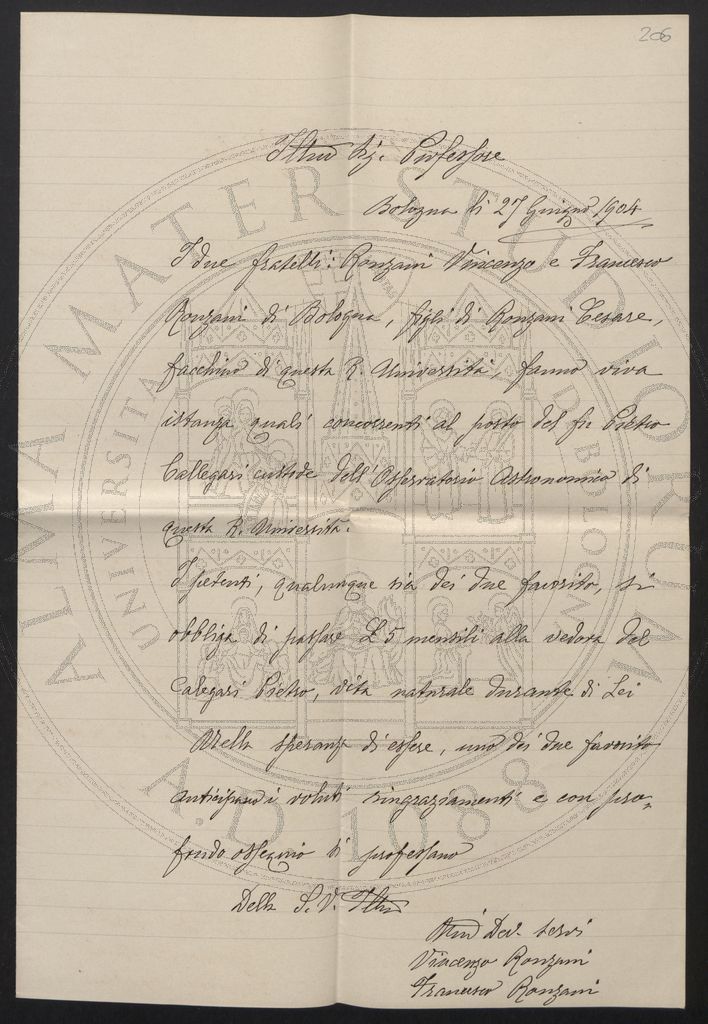 206
Illmo Sig. Professore
Bologna li 27 Giugno 1904
I due fratelli: Ronzani Vincenzo e Francesco
Ronzani di Bologna, figli di Ronzani Cesare,
facchino di questa R. Università, fanno viva
istanza quali concorrenti al posto del fu Pietro
Callegari custode dell'Osservatorio Astronomico di
questa R. Università.
I petenti, qualunque sia dei due favorito, si
obbliga di passare £ 5 mensili alla vedova del
Calegari Pietro, vita naturale durante di Lei
Nella speranza di essere, uno dei due favorito
anticipano i voluti ringraziamenti e con pro-
fondo ossequio si professano
Della S. V. Illma
Dev. servi
Vincenzo Ronzani
Francesco Ronzani
ALMA MATER STUDIORUM
UNIVERSITA DI BOLOGNA
A.D. 1088